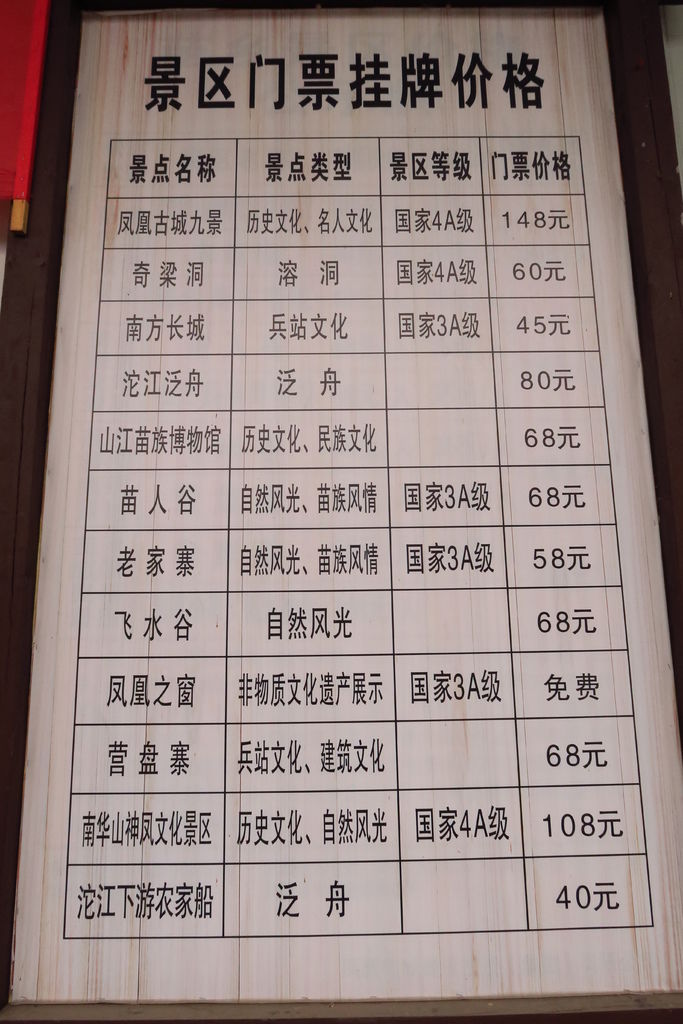 景区门票挂牌价格
景点名称 景点类型 景区等级 门票价格
凤凰古城九景 历史文化、名人文化 国家4A级 148元
奇梁洞 溶洞 国家4A级 60元
南方长城 兵站文化 国家3A级 45元
沱江泛舟 泛舟 80元
山江苗族博物馆 历史文化、民族文化 68元
苗人谷 自然风光、苗族风情 国家3A级 68元
老家寨 自然风光、苗族风情 国家3A级 58元
飞水谷 自然风光 68元
凤凰之窗 非物质文化遗产展示 国家3A级 免费
营盘寨 兵站文化、建筑文化 68元
南华山神凤文化景区 历史文化、自然风光 国家4A级 108元
沱江下游农家船 泛舟 40元